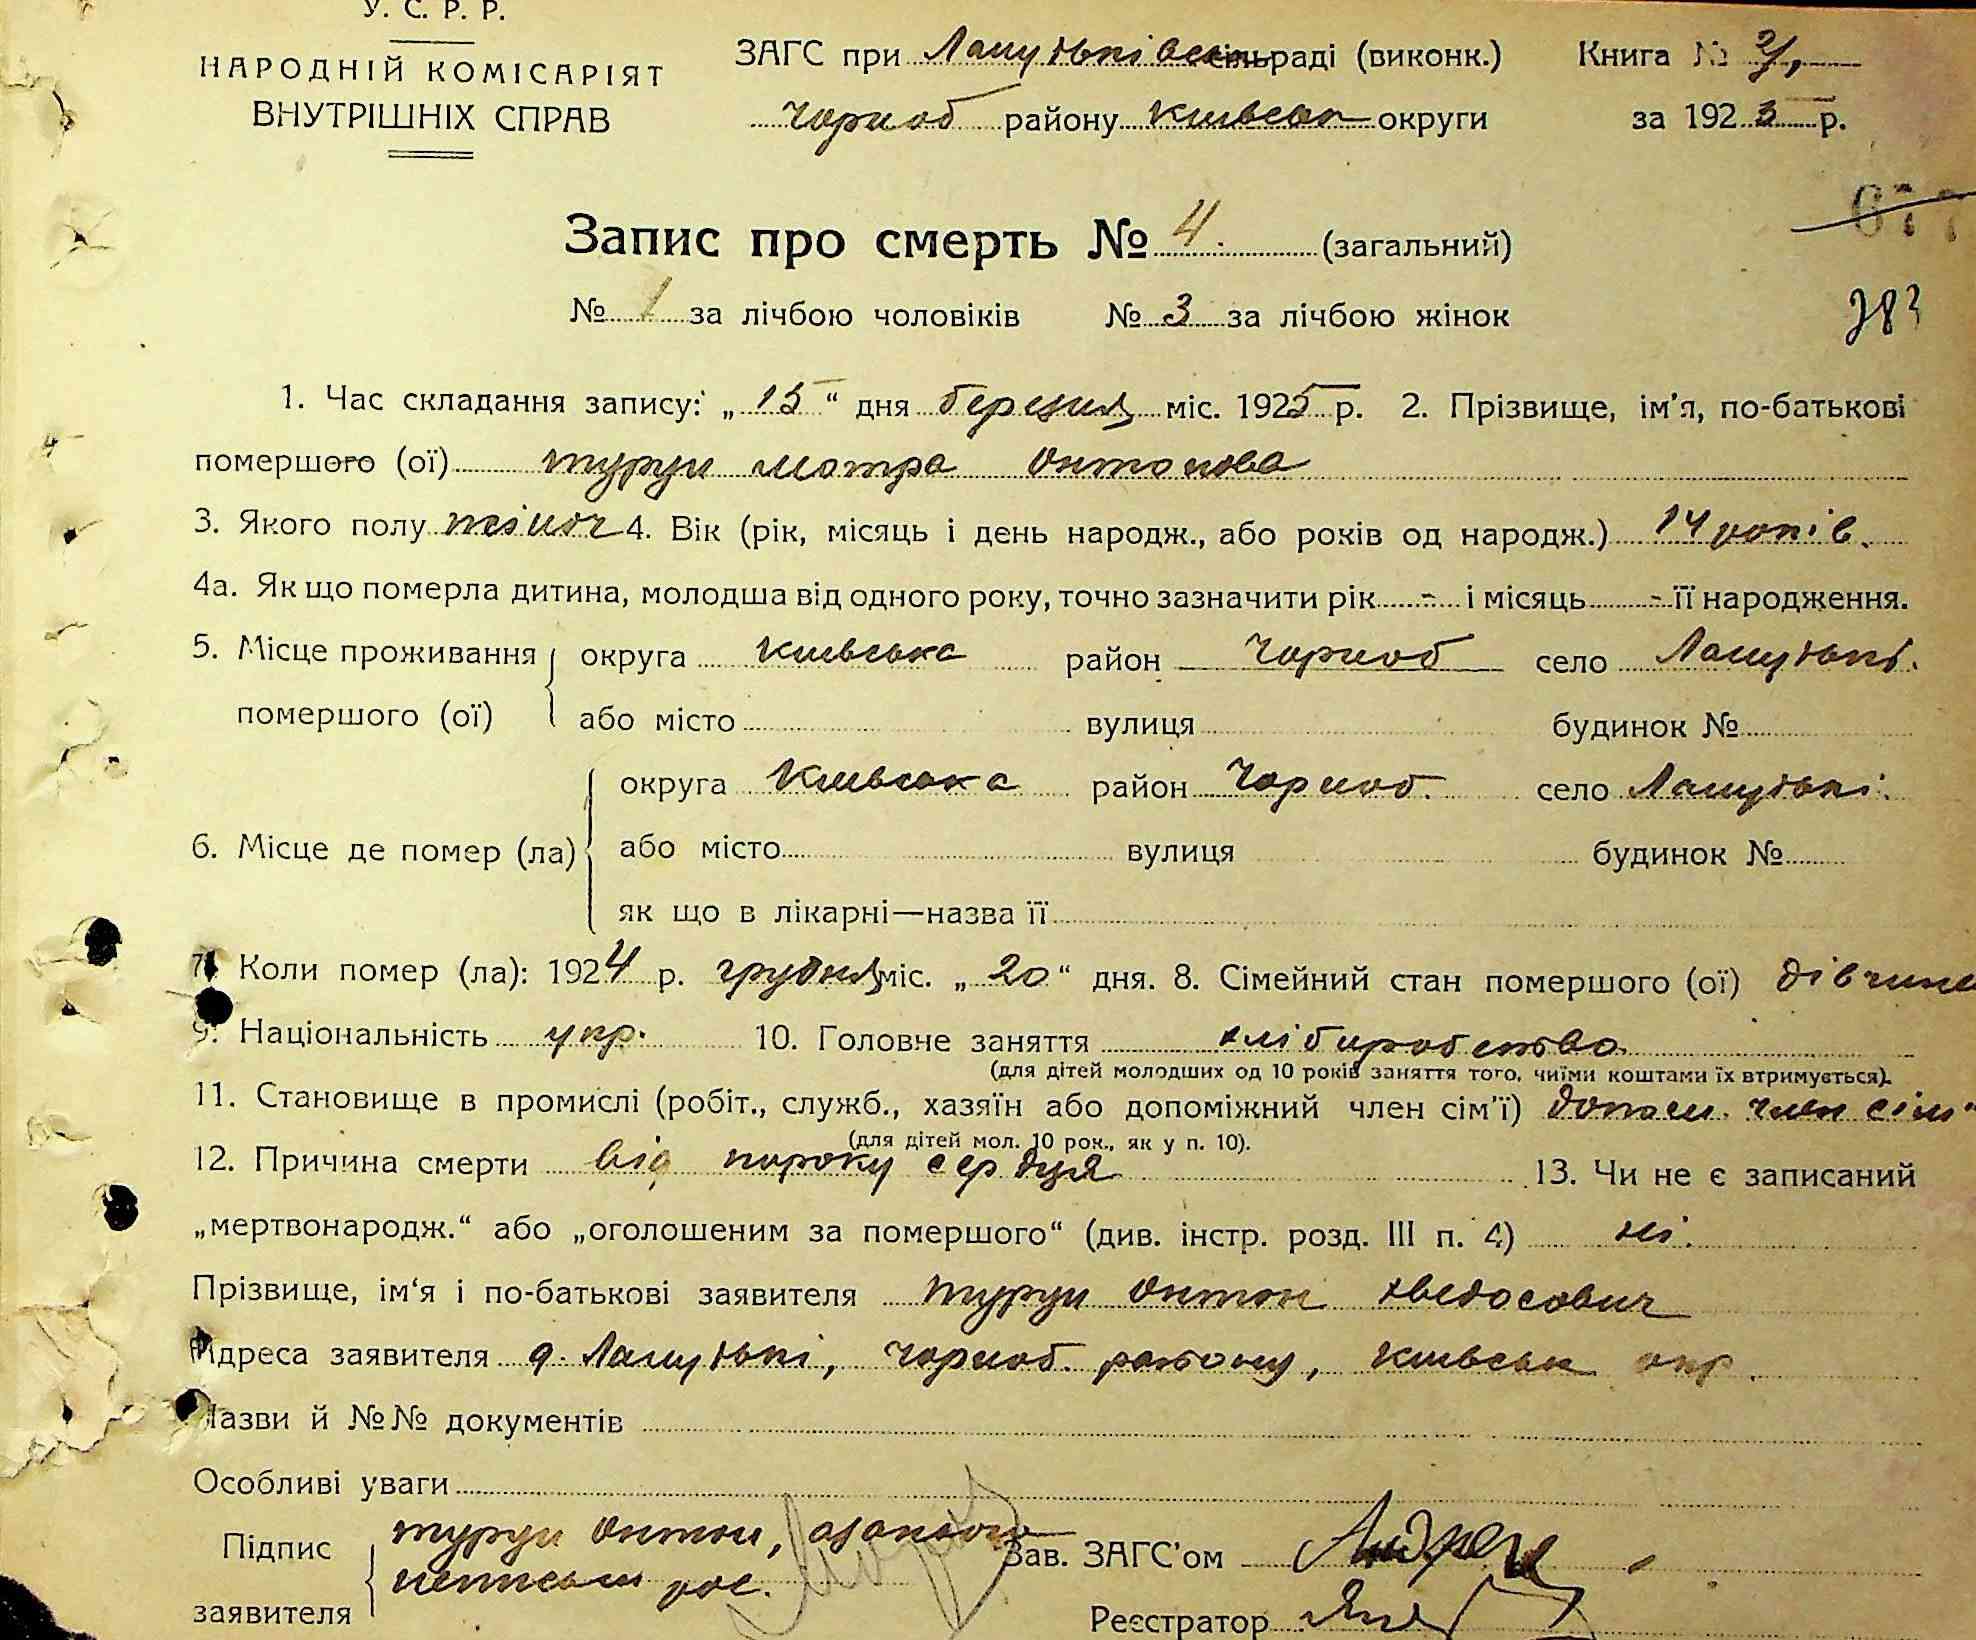 У. С. Р. Р.
НАРОДНІЙ КОМІСАРІЯТ
ВНУТРІШНІХ СПРАВ
ЗАГС при Лапутьківськ сільраді (виконк.) Книга №
Чорноб району Київськ округи за 1925 р.
Запис про смерть № 4. (загальний)
№ 1 за лічбою чоловіків № 3 за лічбою жінок
383
1. Час складання запису: „15“ дня березня міс. 1925 р. 2. Прізвище, ім'я, по-батькові
помершого (ої) мотра онтонова
3. Якого полу жіноч 4. Вік (рік, місяць і день народж., або років од народж.) 14 років.
4а. Як що померла дитина, молодша від одного року, точно зазначити рік - і місяць - її народження.
5. Місце проживання округа Київська район Чорноб село Лапутькі.
помершого (ої) або місто вулиця будинок №
округа Київська район Чорноб. село Лапутькі.
6. Місце де помер (ла) або місто вулиця будинок №
як що в лікарні—назва її
7. Коли помер (ла): 1924 р. грудня міс. „20“ дня. 8. Сімейний стан помершого (ої) дівчина
9. Національність укр. 10. Головне заняття хліборобство
(для дітей молодших од 10 років заняття того, чиїми коштами їх втримується).
11. Становище в промислі (робіт., служб., хазяїн або допоміжний член сім'ї) допом. член сім'
(для дітей мол. 10 рок., як у п. 10).
12. Причина смерти від пороку сердця 13. Чи не є записаний
„мертвонародж.“ або „оголошеним за помершого“ (див. інстр. розд. III п. 4) ні.
Прізвище, ім'я і по-батькові заявителя онтон хведосович
Адреса заявителя Лапутькі, Чорноб. району, Київськ окр.
Назви й №№ документів
Особливі уваги
Підпис онтон, Зав. ЗАГС'ом
заявителя Реєстратор